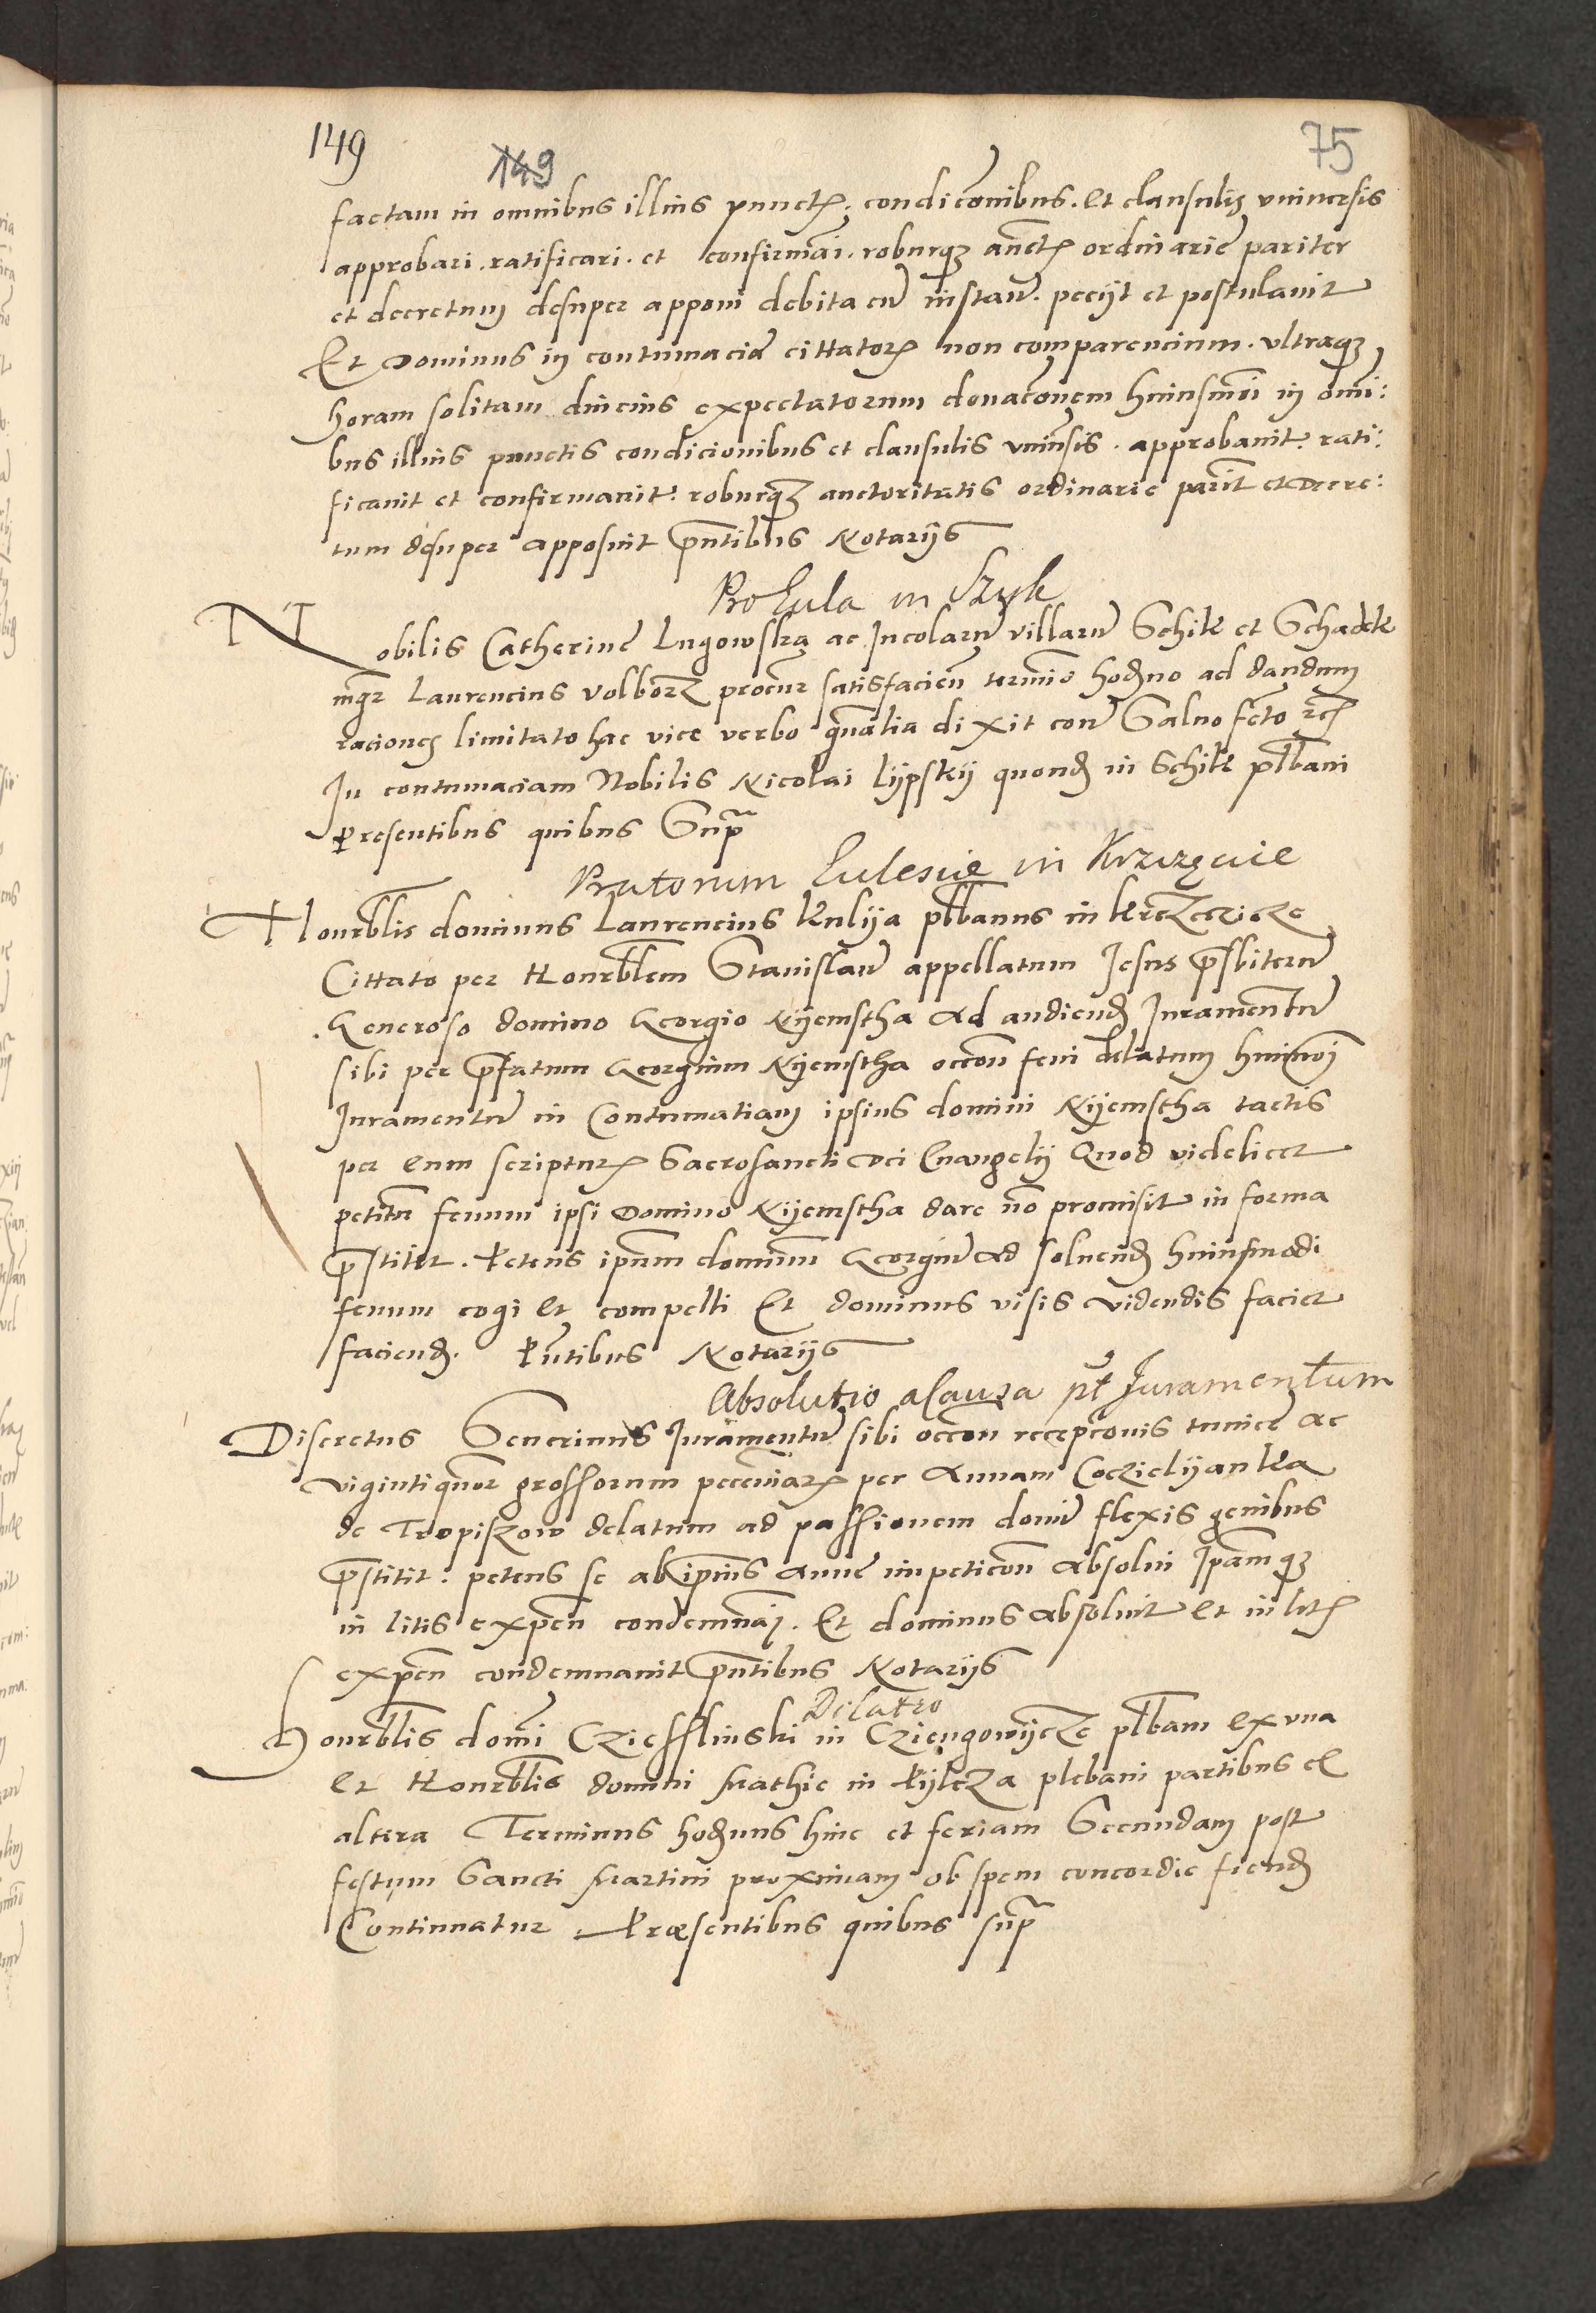 149
149
75
factam in omnibus illius punctꝭ. condiconibus. et clausulis vniuersis
approbari. ratificari. et confirmāi. roburqꝫ auctꝭ ordinarie pariter
et decretum desuper apponi debita cū instan̄. peciyt et postulauit
Et Dominus in contumaciā cittatorꝭ non comparencium. vltraqꝫ
horam solitam diucius expectatorum donaconem huiusmōi in omī:
bus illius punctis condicionibus et clausulis vniūsis. approbauit. rati:
ficauit et confirmauit. roburqꝫ auctoritatis ordinarie parīt et Decre:
tum desuper apposuit p̄ntibus Notarijs
Pro Eccla in Szyk
Nobilis Catherine Lugowska ac Incolarū villarū Schik et Schadek
mgr̄ Laurencius Volborz procur̄ satisfacieñ termīo hodꝫno ad dandum
raciones limitato hac vice verbo gn̄alia dixit con̄ Saluo fc̄to rc̄ꝭ
In contumaciam Nobilis Nicolai lypsky quondꝫ in Schik pl̄bani
presentibus quibus Sup̄
Pratorum Eccesiæ in Krzczęcie
Honrbl̄is dominus Laurencius Kulija pl̄banus in Krczeczicze
Cittato per Honrbl̄em Stanislaū appellatum Jesus p̄sbiterū
Generoso domino Georgio Nyemstha Ad audiendꝫ Iuramentū
sibi per p̄fatum Georgium Nyemstha occon̄ feni delatum huiusmōi
Iuramentū in Contumatiam ipsius domini Nyemstha tactis
per eum scripturꝭ Sacrosancti Dei Euangelij Quod videlicet
petitū fenum ipsi Domino Nyemstha dare nō promisit in forma
p̄stitit. Petens ipsum dominum Georgiū ad soluendꝫ huiusmodi
fenum cogi et compelli Et dominus visis videndis faciet
faciendꝫ. Pn̄tibus Notarijs
Absolutio a causa pt̄ Iuramentum
Discretus Seuerinus Iuramentū sibi occon̄ recepconis tunice ac
vigintiquor grossorum pecuniarꝭ per Annam Cocziclyanka
de Tropiszow delatum ad passionem domī flexis genibus
p̄stitit: petens se ab ip̄ius Anne impeticon̄ absolui Ipāmqꝫ
in litis expen̄ condemnāj. Et dominus absoluit et in litꝭ
expen̄ condemnauit p̄ntibus Notarijs
Dilatio
Honrbl̄is domī Cziesslinski in Cziengowycze pl̄bani ex vna
et Honrbl̄is domini Mathie in Pylcza plebani partibus ex
altera Terminus hodꝫnus hinc et feriam Secundam post
festum Sancti Martini proximam ob spem concordie fiendꝫ
Continuatur Præsentibus quibus sup̄